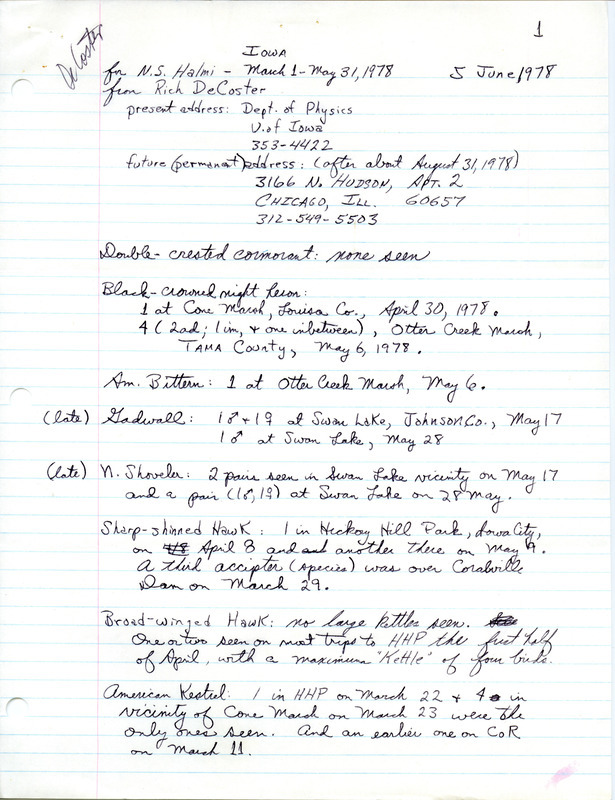 1
DeCoster
Iowa
for N.S. Halmi - March 1 - May 31, 1978 5 June 1978
from Rich DeCoster
present address: Dept. of Physics
U. of Iowa
353-4422
future (permanent) address: (after about August 31, 1978)
3166 N. HUDSON, APT. 2
CHICAGO, ILL. 60657
312-549-5503
Double-crested cormorant: none seen
Black-crowned night heron:
1 at Cone Marsh, Louisa Co., April 30, 1978.
4 (2ad; 1im, + one inbetween), Otter Creek Marsh,
TAMA County, May 6, 1978.
Am. Bittern: 1 at Otter Creek Marsh, May 6.
(late) Gadwall: 1♂ + 1♀ at Swan Lake, Johnson Co., May 17
1♂ at Swan Lake, May 28
(late) N. Shoveler: 2 pairs seen in Swan Lake vicinity on May 17
and a pair (1♂, 1♀) at Swan Lake on 28 May.
Sharp-shinned Hawk: 1 in Hickory Hill Park, Iowa City,
on April 8 and another there on May
A third accipter (species) was over Coralville
Dam on March 29.
Broad-winged Hawk: no large kettles seen.
One or two seen on most trips to HHP the first half
of April, with a maximum "Kettle" of four birds.
American Kestrel: 1 in HHP on March 22 + 4 in
vicinity of Cone Marsh on March 23 were the
only ones seen. And an earlier one on CoR
on March 11.